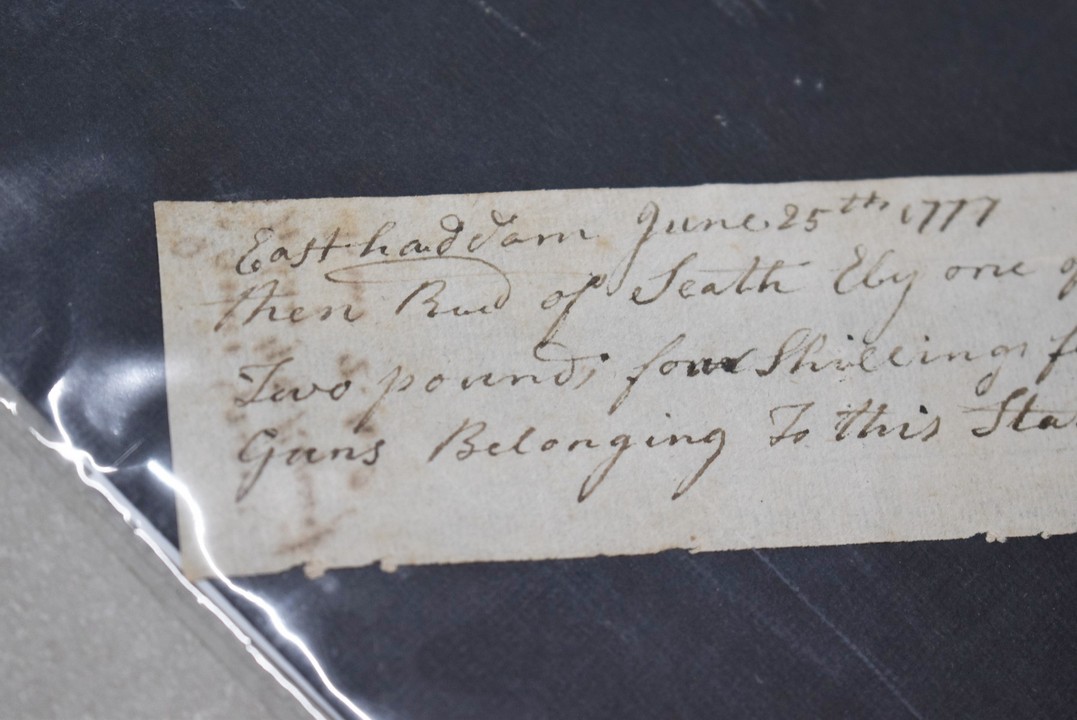 East haddam June 25th 1777
then Recd of Seath Ely one of
Two pounds four Shillings
Guns Belonging To this Sta